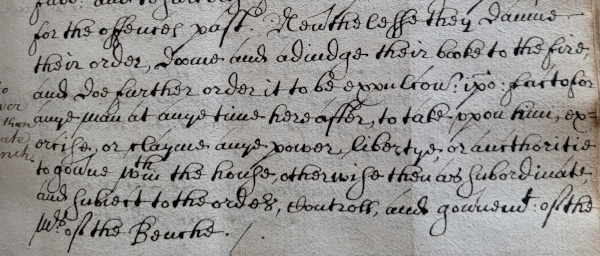 for the offences past. Neuthelesse they damne
their order, doome and adiudge their booke to the fire,
and doe further order it to be expulcon: ipo: facto for
anye man at anye time hereafter, to take vppon him, ex=
ercise, or clayme anye power, libertye, or authoritie
to gouue wthin the house, otherwise then as subordinate,
and subiect to the orders, controll, and gouuent: of the
Mrs of the Benche.